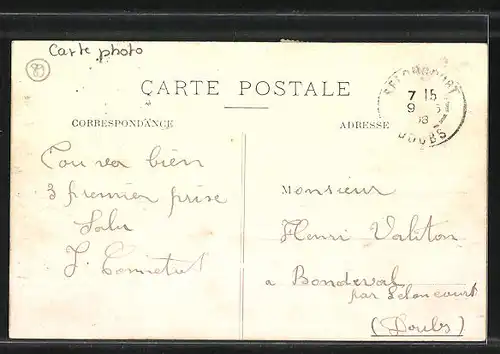 Carte photo
89
CARTE POSTALE
SELONCOURT
7 15
9
08
DOUBS
CORRESPONDANCE
ADRESSE
Tou va bien
3 premier prise
Salu
Monsieur
Henri Valiton
a Bondeval
par Seloncourt
(Doubs)